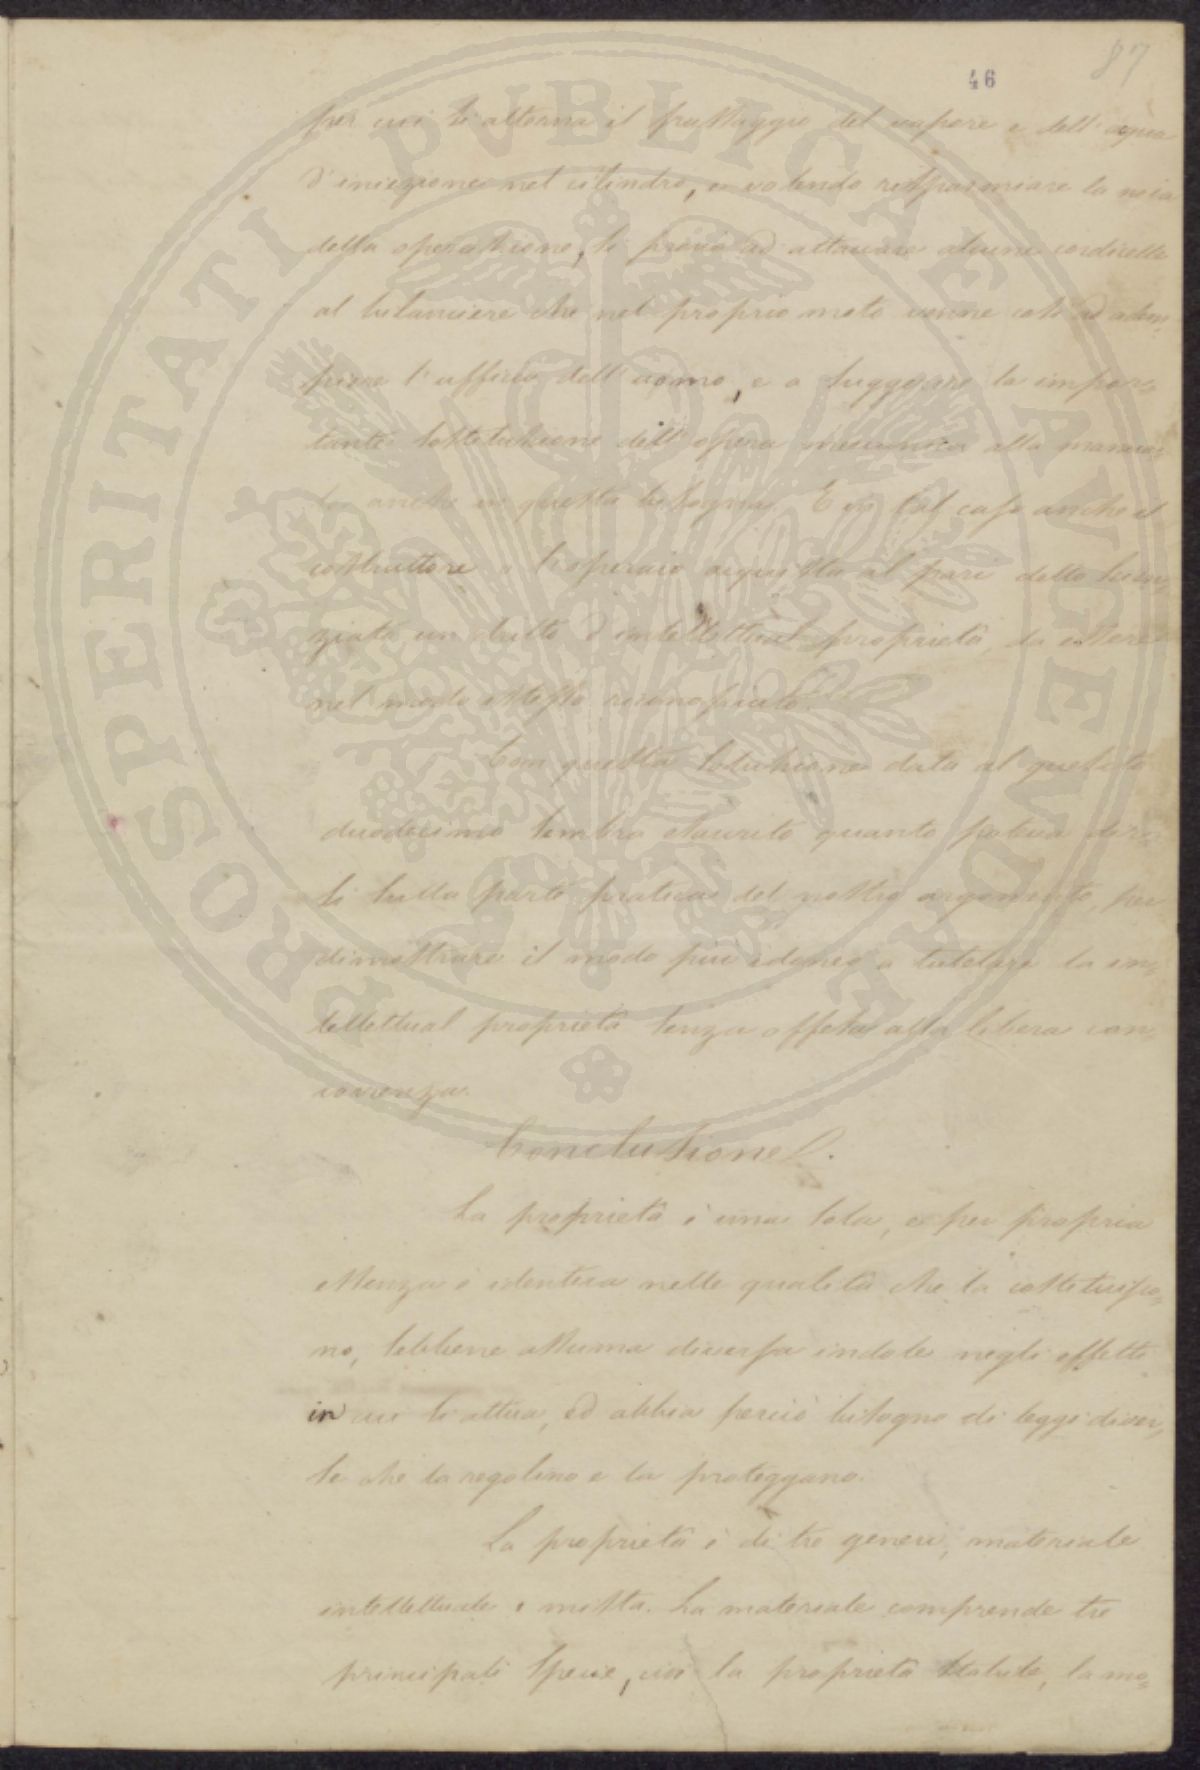 87
46
per cui si alterna il passaggio del vapore e dell'acqua
d'iniezione nel cilindro, e volendo risparmiare la noia
della operazione, si provò ad attaccare alcune cordicelle
al bilanciere che nel proprio moto venne così ad adem=
piere l'ufficio dell'uomo, e a suggerire la impor=
tante sostituzione dell'opera meccanica alla manua=
le anche in questa bisogna. E in tal caso anche il
costruttore o l'operaio acquista al pari dello scien=
ziato un dritto d'intellettual proprietà, da essere
nel modo istesso riconosciuto.
Con questa soluzione data al quesito
duodecimo sembra esaurito quanto poteva dir=
si sulla parte pratica del nostro argomento, per
dimostrare il modo più idoneo a tutelare la in=
tellettual proprietà senza offesa alla libera con=
correnza.
Conclusione.
La proprietà è una sola, e per propria
essenza è identica nelle qualità che la costituisco=
no, sebbene assuma diversa indole negli effetti
in cui si attua, ed abbia perciò bisogno di leggi diver=
se che la regolino e la proteggano.
La proprietà è di tre generi, materiale
intellettuale e mista. La materiale comprende tre
principali specie, cioè la proprietà stabile, la mo=
PROSPERITATI PVBLICAE AVGENDAE